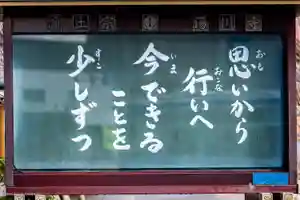 おも
思いから
おこな
行いへ
いま
今できる
ことを
すこ
少しずつ